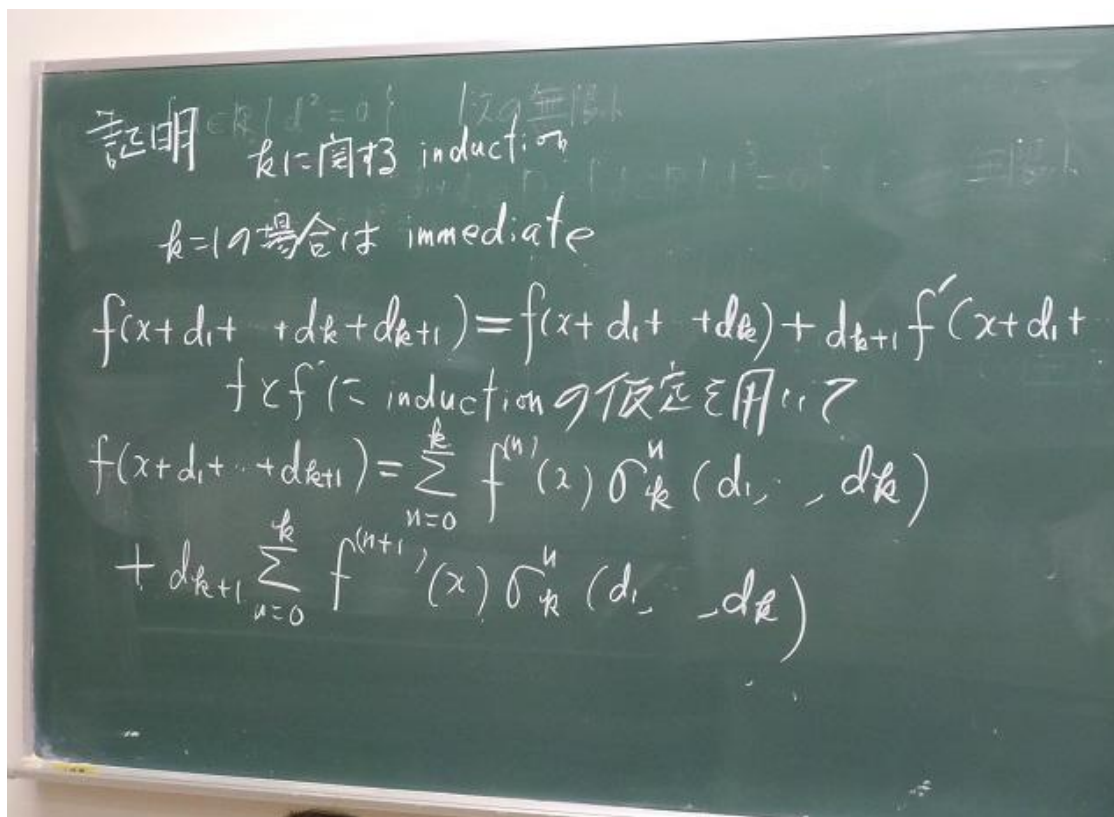 証明 kに関する induction
k=1の場合は immediate
f(x+d₁+ +dk+dk+1)=f(x+d₁+ +dk)+dk+1 f′(x+d₁+
fとf′に inductionの仮定を用いて
f(x+d₁+‥+dk+1)=∑_{n=0}^{k} f^{(n)}(x) σ_k^n (d₁, , dk)
+ dk+1 ∑_{n=0}^{k} f^{(n+1)}(x) σ_k^n (d₁, , dk)